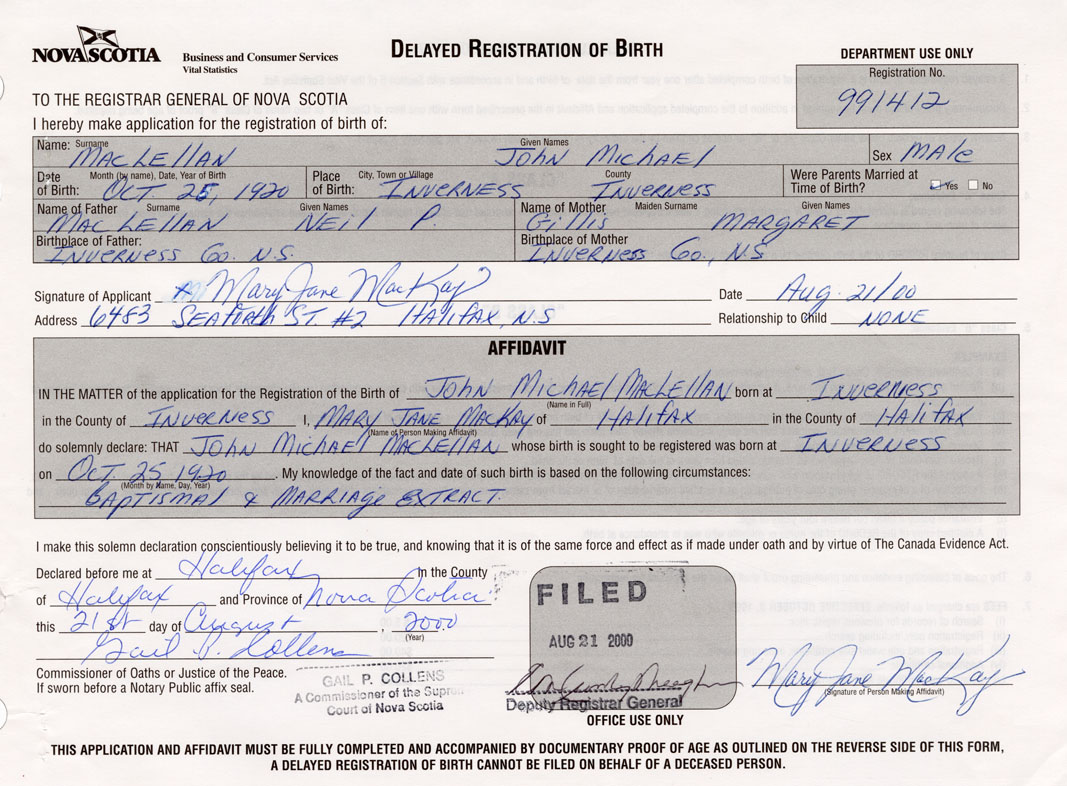 NOVA SCOTIA
Business and Consumer Services
Vital Statistics
DELAYED REGISTRATION OF BIRTH
DEPARTMENT USE ONLY
Registration No.
991412
TO THE REGISTRAR GENERAL OF NOVA SCOTIA
I hereby make application for the registration of birth of:
Name: Surname Given Names
MACLELLAN JOHN MICHAEL Sex MALE
Date of Birth: Month (by name), Date, Year of Birth Place of Birth: City, Town or Village County Were Parents Married at Time of Birth? Yes No
OCT 25, 1920 INVERNESS INVERNESS
Name of Father Surname Given Names Name of Mother Maiden Surname Given Names
MACLELLAN NEIL P. GILLIS MARGARET
Birthplace of Father: Birthplace of Mother
INVERNESS Co. N.S. INVERNESS Co., N.S
Signature of Applicant x Mary Jane MacKay Date Aug. 21/00
Address 6483 SEAFORTH ST. #2 HALIFAX, N.S Relationship to Child NONE
AFFIDAVIT
IN THE MATTER of the application for the Registration of the Birth of JOHN MICHAEL MACLELLAN born at INVERNESS
(Name in Full)
in the County of INVERNESS I, MARY JANE MACKAY of HALIFAX in the County of HALIFAX
(Name of Person Making Affidavit)
do solemnly declare: THAT JOHN MICHAEL MACLELLAN whose birth is sought to be registered was born at INVERNESS
on OCT. 25 1920. My knowledge of the fact and date of such birth is based on the following circumstances:
(Month by Name, Day, Year)
BAPTISMAL & MARRIAGE EXTRACT.
I make this solemn declaration conscientiously believing it to be true, and knowing that it is of the same force and effect as if made under oath and by virtue of The Canada Evidence Act.
Declared before me at Halifax in the County
of Halifax and Province of Nova Scotia
this 21st day of August, 2000
(Year)
Gail P. Collens
Commissioner of Oaths or Justice of the Peace.
If sworn before a Notary Public affix seal.
GAIL P. COLLENS
A Commissioner of the Suprem
Court of Nova Scotia
FILED
AUG 21 2000
Deputy Registrar General
OFFICE USE ONLY
Mary Jane MacKay
(Signature of Person Making Affidavit)
THIS APPLICATION AND AFFIDAVIT MUST BE FULLY COMPLETED AND ACCOMPANIED BY DOCUMENTARY PROOF OF AGE AS OUTLINED ON THE REVERSE SIDE OF THIS FORM,
A DELAYED REGISTRATION OF BIRTH CANNOT BE FILED ON BEHALF OF A DECEASED PERSON.